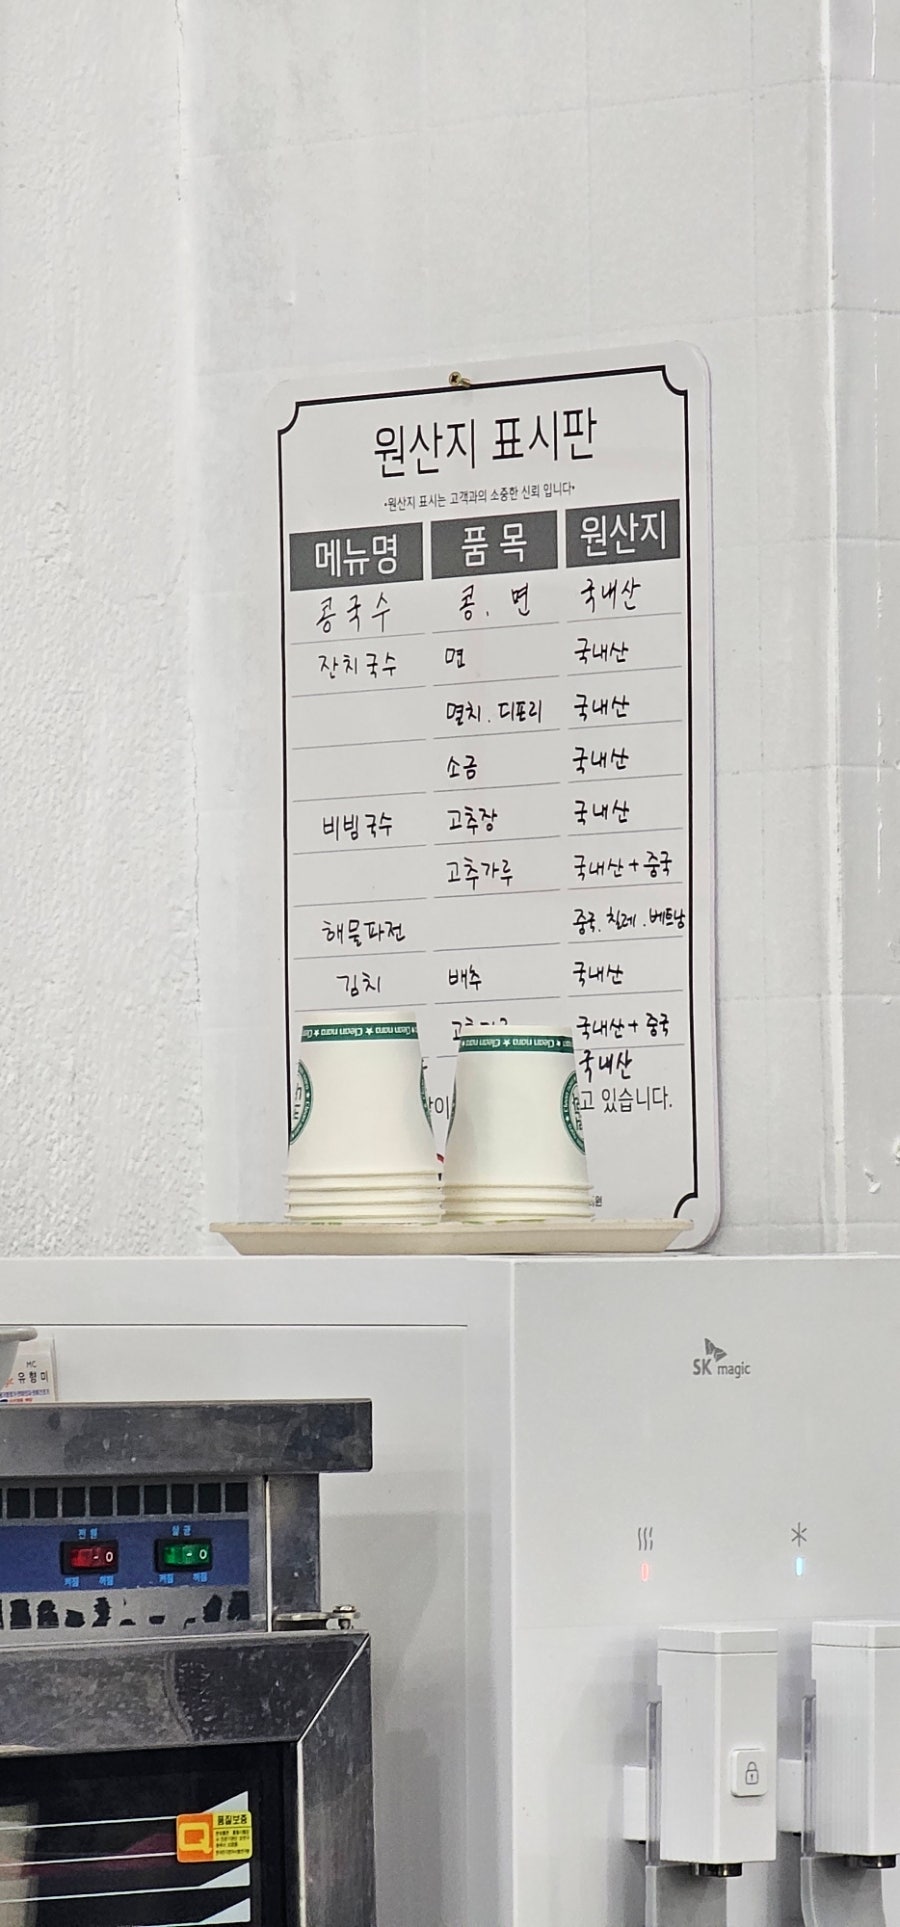 원산지 표시판
•원산지 표시는 고객과의 소중한 신뢰 입니다•
메뉴명 품 목 원산지
콩국수 콩. 면 국내산
잔치국수 면 국내산
멸치. 디포리 국내산
소금 국내산
비빔국수 고추장 국내산
고추가루 국내산+중국
해물파전 중국. 칠레. 베트남
김치 배추 국내산
국내산+중국
국내산
고 있습니다.
Clean nara ★ Clean nara
Clean nara ★ Clean nara
SK magic
MC
유향미
전원
살균
켜짐 꺼짐
켜짐 꺼짐
품질보증
Q